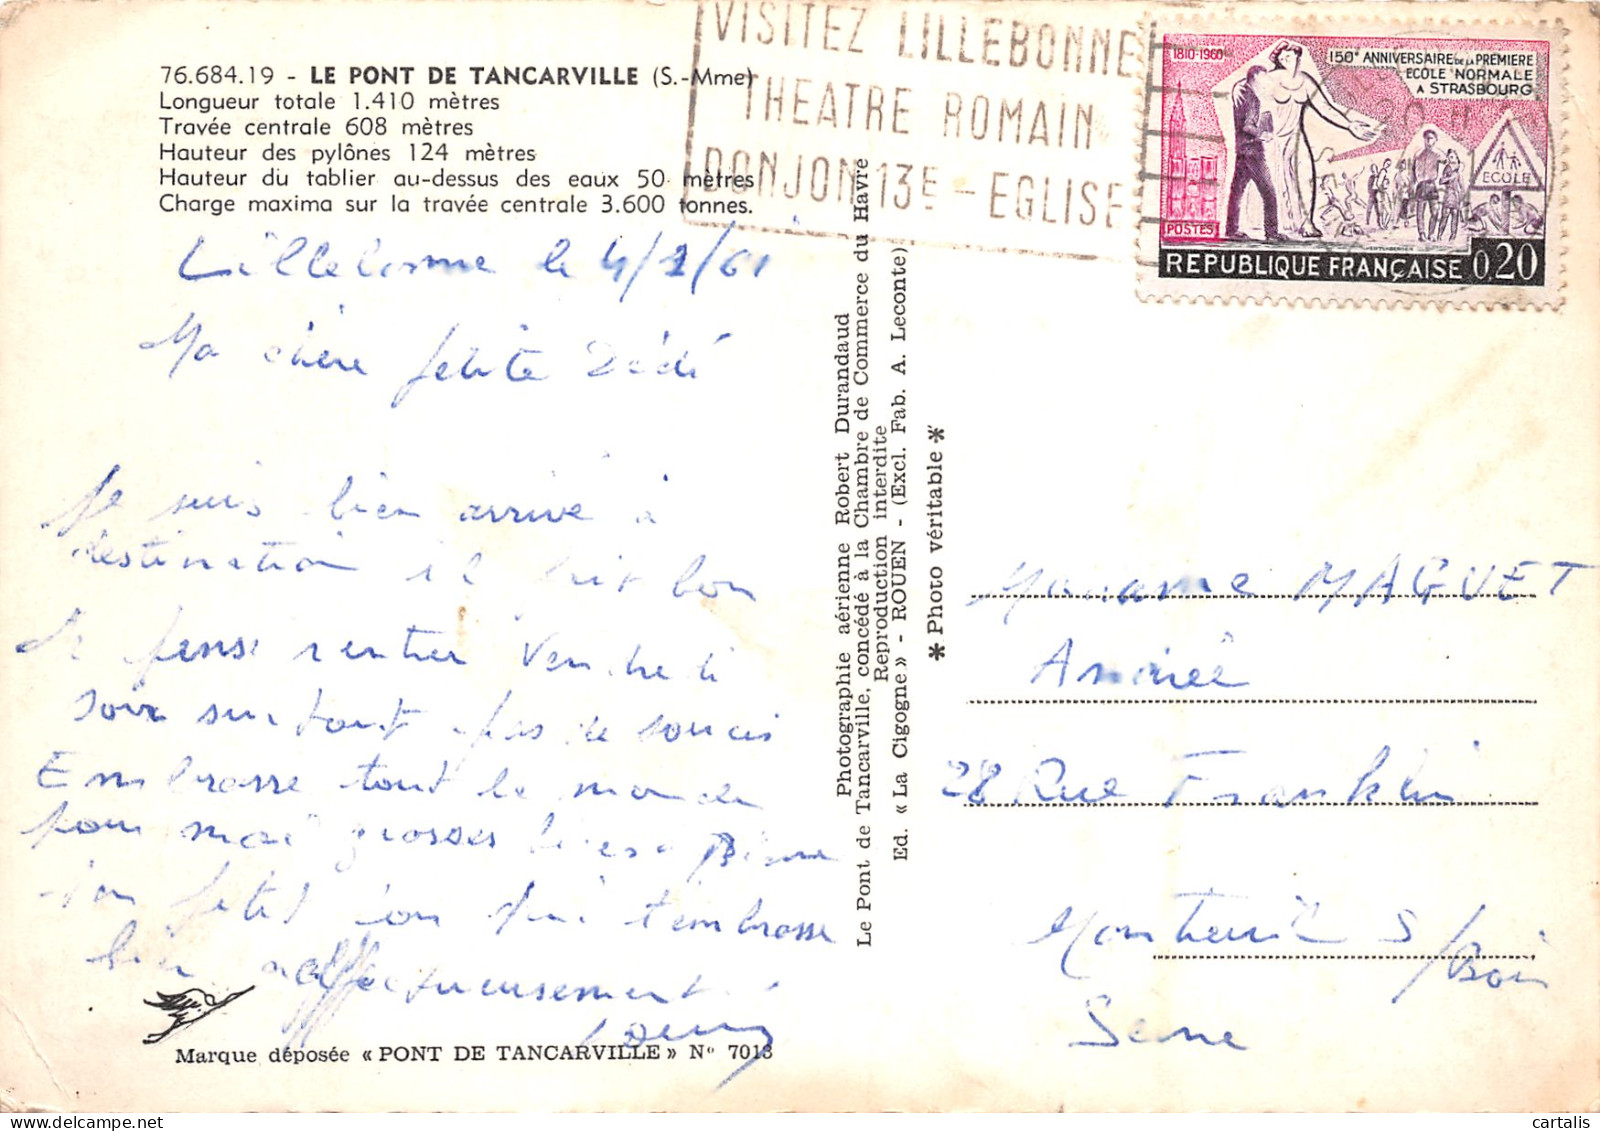 76.684.19 - LE PONT DE TANCARVILLE (S.-Mme)
Longueur totale 1.410 mètres
Travée centrale 608 mètres
Hauteur des pylônes 124 mètres
Hauteur du tablier au-dessus des eaux 50 mètres
Charge maxima sur la travée centrale 3.600 tonnes.
VISITEZ LILLEBONNE
THEATRE ROMAIN
DONJON 13E - EGLISE
1810-1960
150e ANNIVERSAIRE DE LA PREMIERE
ECOLE NORMALE
A STRASBOURG
ECOLE
POSTES
REPUBLIQUE FRANÇAISE 0,20
Lillebonne le 4/2/61
Ma chère petite Dédé
Je suis bien arrivé à
destination il fait bon
Je pense rentrer Vendredi
soir surtout pas de soucis
Embrasse tout le monde
pour moi grosses bises
ton petit qui t'embrasse
bien affectueusement
Marque déposée « PONT DE TANCARVILLE » N° 7013
Photographie aérienne Robert Durandaud
Le Pont de Tancarville, concédé à la Chambre de Commerce du Havre
Reproduction interdite
Ed. « La Cigogne » - ROUEN - (Excl. Fab. A. Leconte)
* Photo véritable *
Madame MAGUET
Andrée
28 Rue Franklin
Montreuil S/Bois
Seine